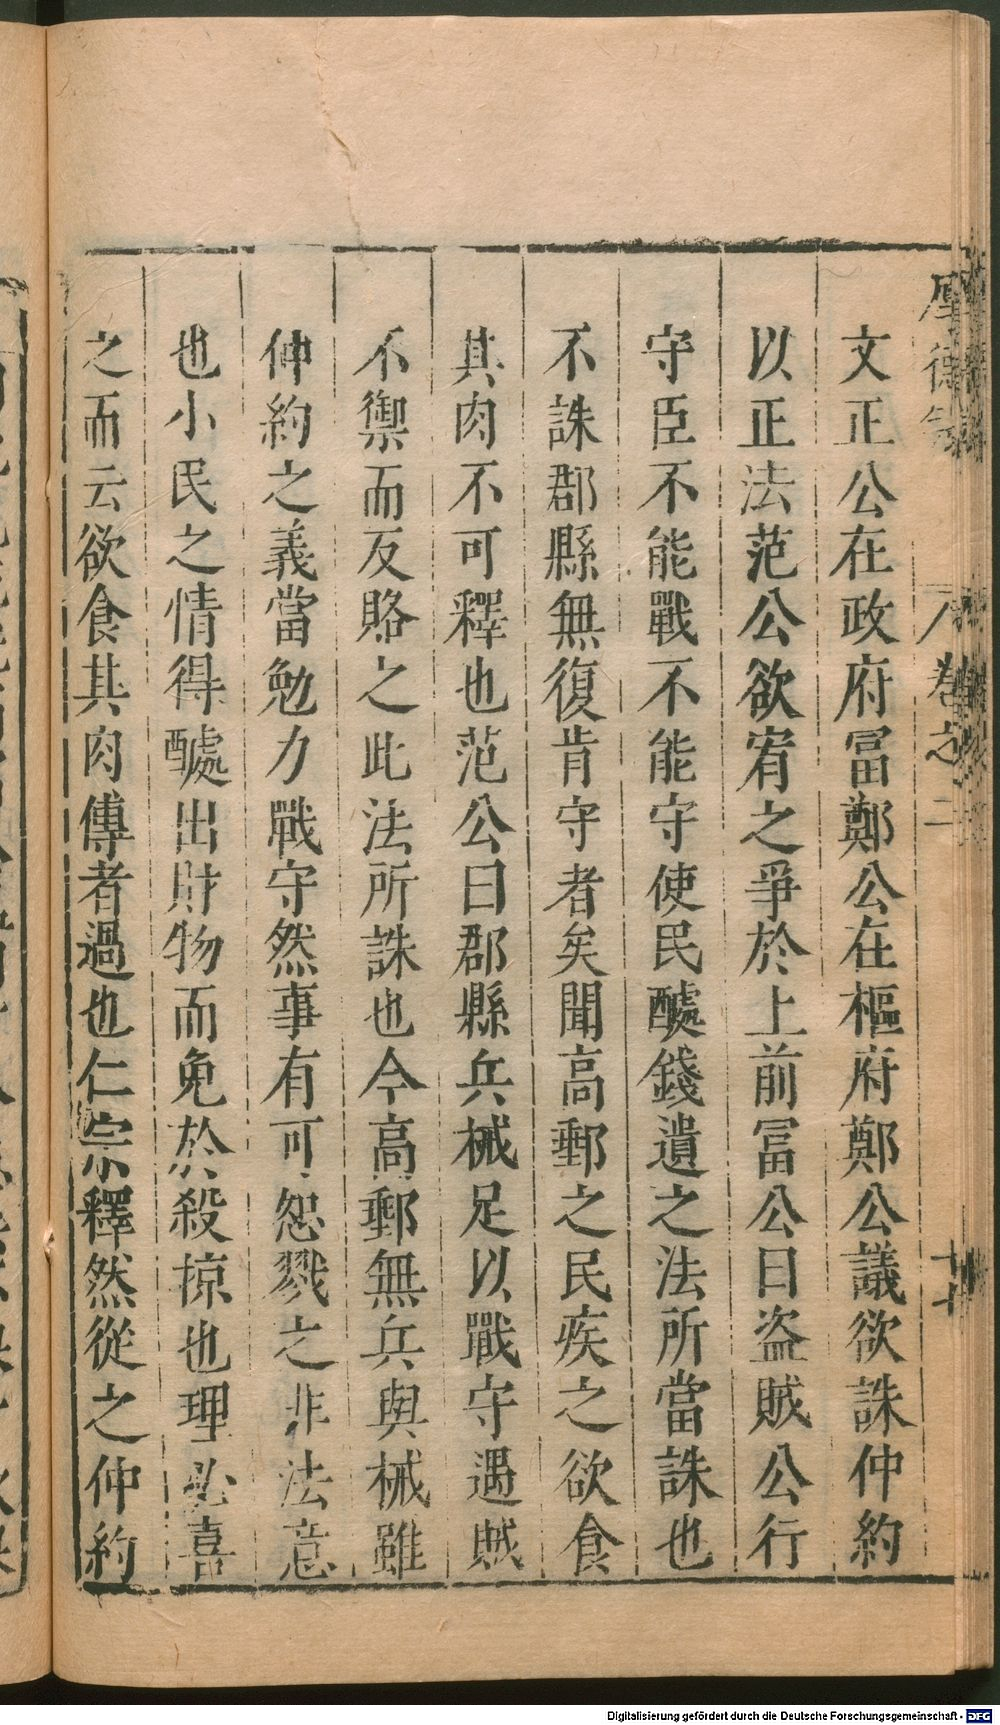 厚德錄 卷之二 十七
文正公在政府冨鄭公在樞府鄭公議欲誅仲約
以正法范公欲宥之爭於上前冨公曰盗賊公行
守臣不能戰不能守使民醵錢遺之法所當誅也
不誅郡縣無復肯守者矣聞高郵之民疾之欲食
其肉不可釋也范公曰郡縣兵械足以戰守遇賊
不禦而反賂之此法所誅也今高郵無兵與械雖
仲約之義當勉力戰守然事有可恕戮之非法意
也小民之情得醵出財物而免於殺掠也理必喜
之而云欲食其肉傳者過也仁宗釋然從之仲約
Digitalisierung gefördert durch die Deutsche Forschungsgemeinschaft - DFG